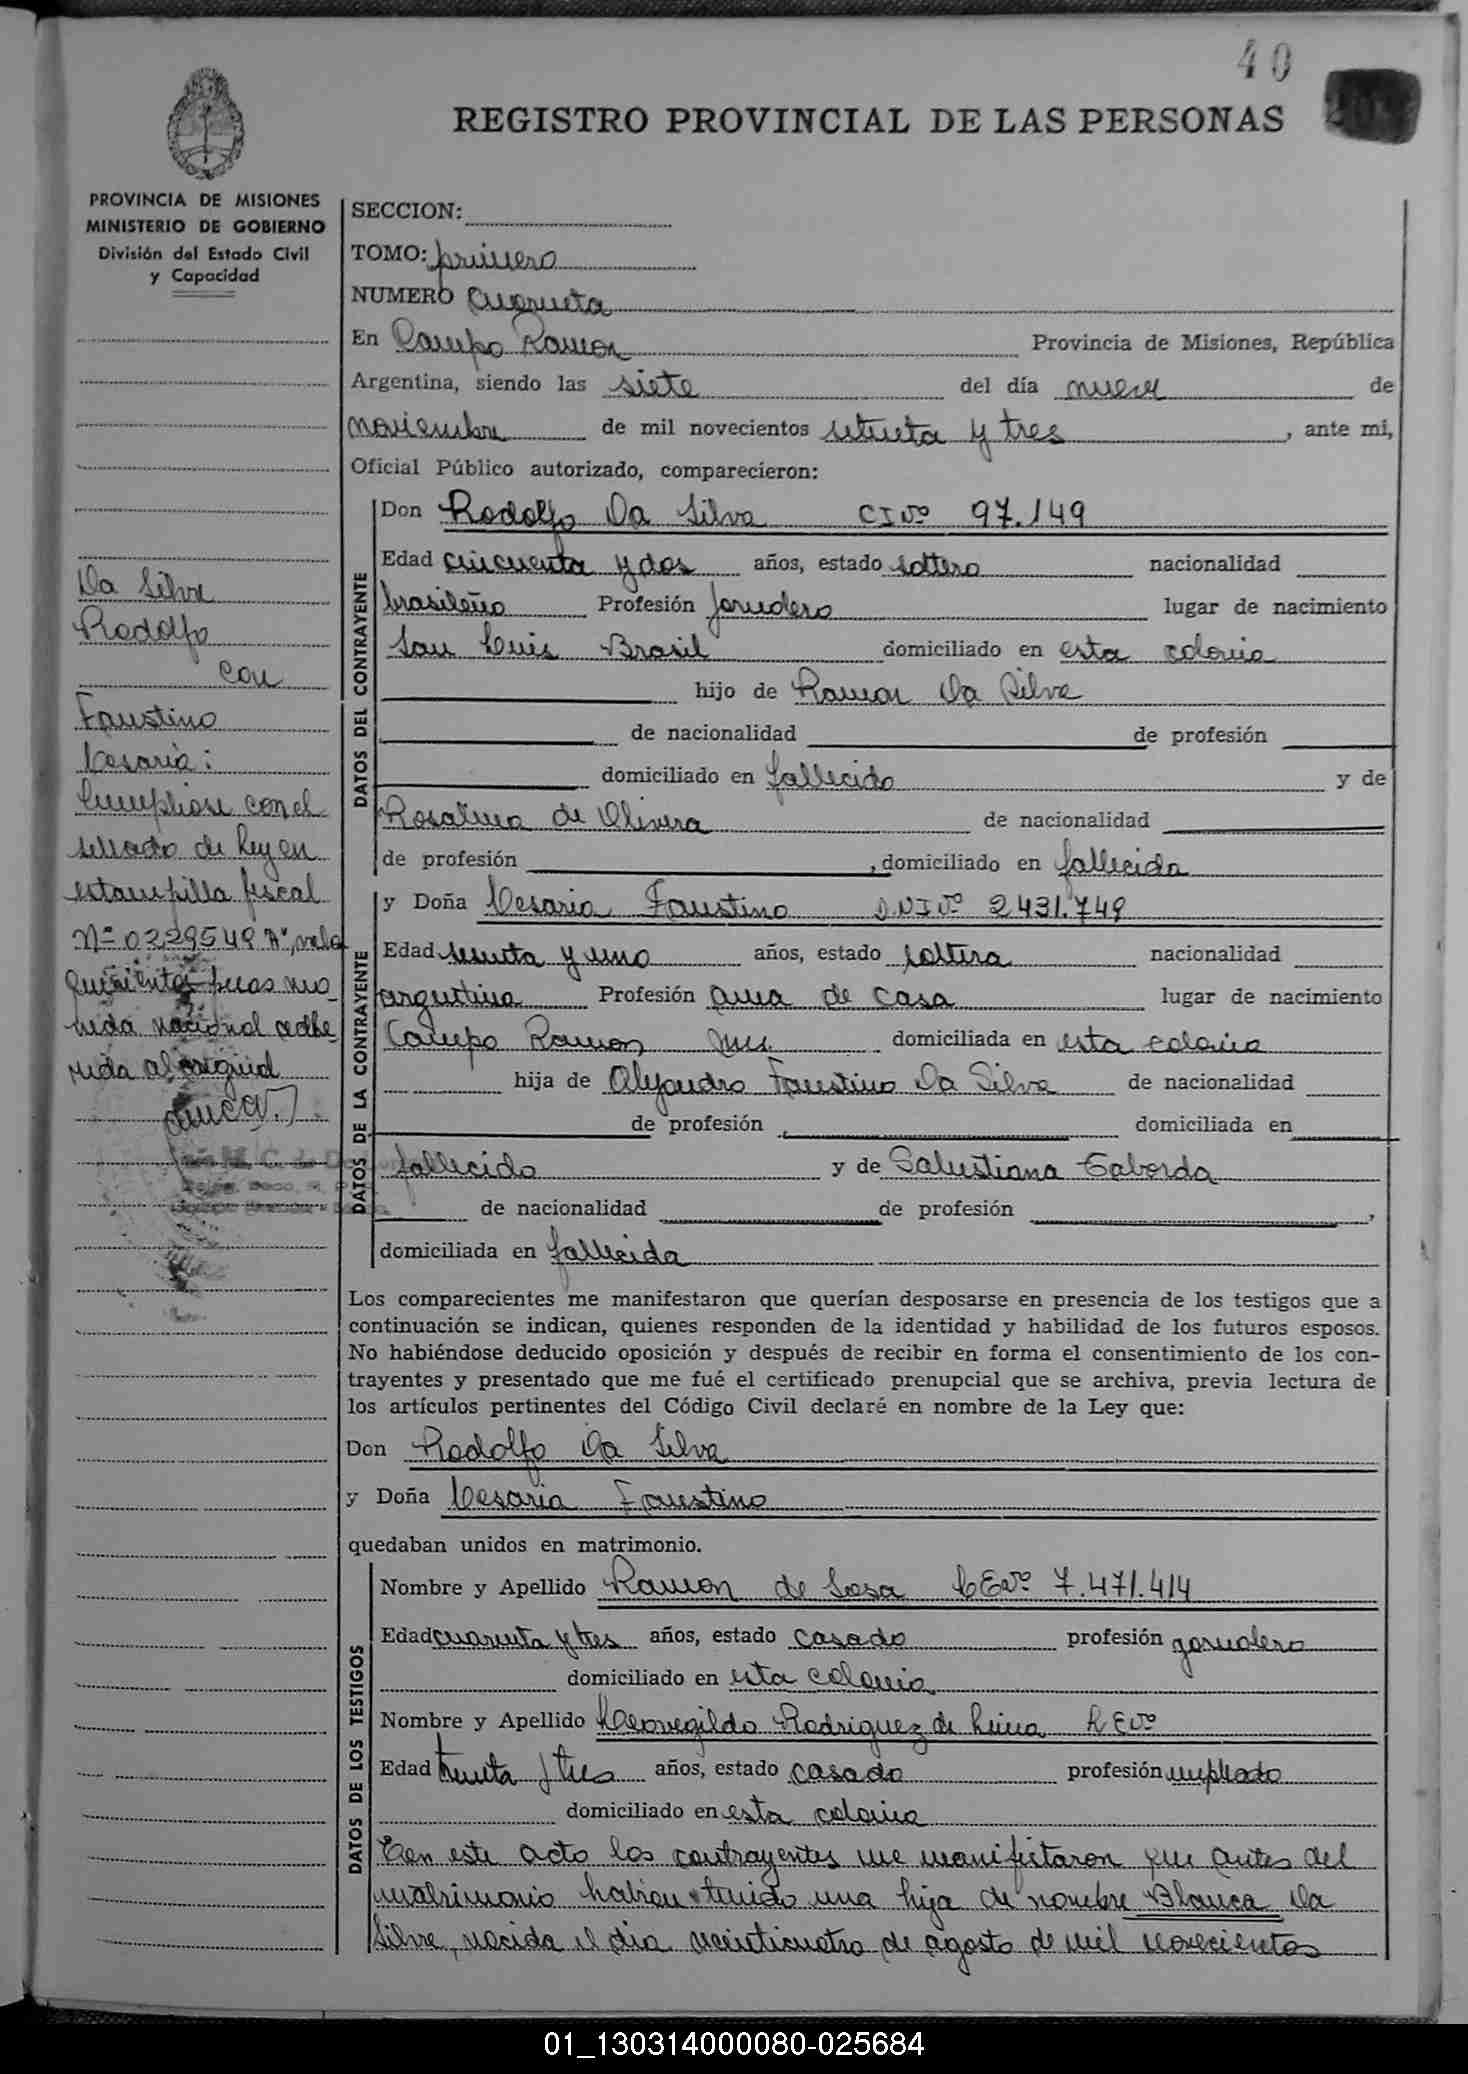 40
REGISTRO PROVINCIAL DE LAS PERSONAS
PROVINCIA DE MISIONES
MINISTERIO DE GOBIERNO
División del Estado Civil
y Capacidad
SECCION:
TOMO: primero
NUMERO cuarenta
En Campo Ramon Provincia de Misiones, República
Argentina, siendo las siete del día nueve de
noviembre de mil novecientos setenta y tres, ante mi,
Oficial Público autorizado, comparecieron:
DATOS DEL CONTRAYENTE
Don Rodolfo Da Silva CI Nº 97.149
Edad cincuenta y dos años, estado soltero nacionalidad
brasileño Profesión jornalero lugar de nacimiento
San Luis Brasil domiciliado en esta colonia
hijo de Ramon Da Silva
de nacionalidad de profesión
domiciliado en fallecido y de
Rosalina de Olivera de nacionalidad
de profesión , domiciliado en fallecida
DATOS DE LA CONTRAYENTE
y Doña Cesaria Faustino D.N.I Nº 2431.749
Edad treinta y uno años, estado soltera nacionalidad
argentina Profesión ama de casa lugar de nacimiento
Campo Ramon Mnes. domiciliada en esta colonia
hija de Alejandro Faustino Da Silva de nacionalidad
de profesión , domiciliada en
fallecido y de Salustiana Gaborda
de nacionalidad de profesión ,
domiciliada en fallecida
Da Silva
Rodolfo
con
Faustino
Cesaria:
Cumpliose con el
sellado de Ley en
estampilla fiscal
Nº 0229549 "A", vale
quinientos pesos mo
neda nacional adhe
rida al original
Los comparecientes me manifestaron que querían desposarse en presencia de los testigos que a
continuación se indican, quienes responden de la identidad y habilidad de los futuros esposos.
No habiéndose deducido oposición y después de recibir en forma el consentimiento de los con-
trayentes y presentado que me fué el certificado prenupcial que se archiva, previa lectura de
los artículos pertinentes del Código Civil declaré en nombre de la Ley que:
Don Rodolfo Da Silva
y Doña Cesaria Faustino
quedaban unidos en matrimonio.
DATOS DE LOS TESTIGOS
Nombre y Apellido Ramon de Sosa L E Nº 7.471.414
Edad cuarenta y tres años, estado casado profesión jornalero
domiciliado en esta colonia
Nombre y Apellido Hermegildo Rodriguez de Lima L E Nº
Edad treinta y tres años, estado casado profesión empleado
domiciliado en esta colonia
En este acto los contrayentes me manifestaron que antes del
matrimonio habian tenido una hija de nombre Blanca Da
Silva, nacida el dia veinticuatro de agosto de mil novecientos
01_130314000080-025684